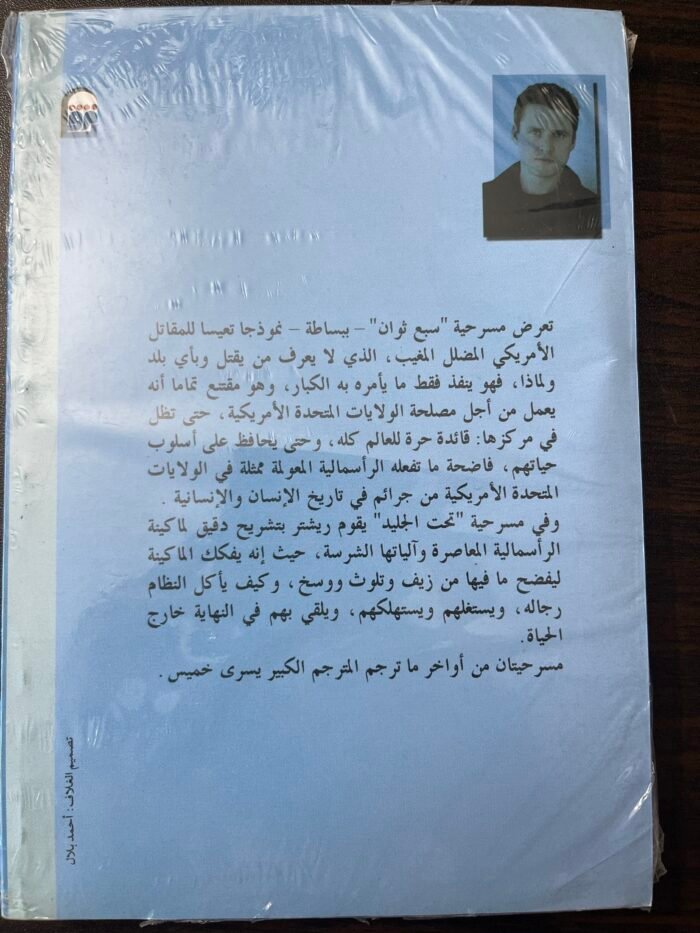 تعرض مسرحية "سبع ثوان" – ببساطة – نموذجا تعيسا للمقاتل
الأمريكي المضلل المغيب، الذي لا يعرف من يقتل وبأي بلد
ولماذا، فهو ينفذ فقط ما يأمره به الكبار، وهو مقتنع تماما أنه
يعمل من أجل مصلحة الولايات المتحدة الأمريكية، حتى تظل
في مركزها: قائدة حرة للعالم كله، وحتى يحافظ على أسلوب
حياتهم، فاضحة ما تفعله الرأسمالية المعولمة ممثلة في الولايات
المتحدة الأمريكية من جرائم في تاريخ الإنسان والإنسانية .
وفي مسرحية "تحت الجليد" يقوم ريشتر بتشريح دقيق لماكينة
الرأسمالية المعاصرة وآلياتها الشرسة، حيث إنه يفكك الماكينة
ليفضح ما فيها من زيف وتلوث ووسخ، وكيف يأكل النظام
رجاله، ويستغلهم ويستهلكهم، ويلقي بهم في النهاية خارج
الحياة.
مسرحيتان من أواخر ما ترجم المترجم الكبير يسرى خميس.
تصميم الغلاف: أحمد بلال